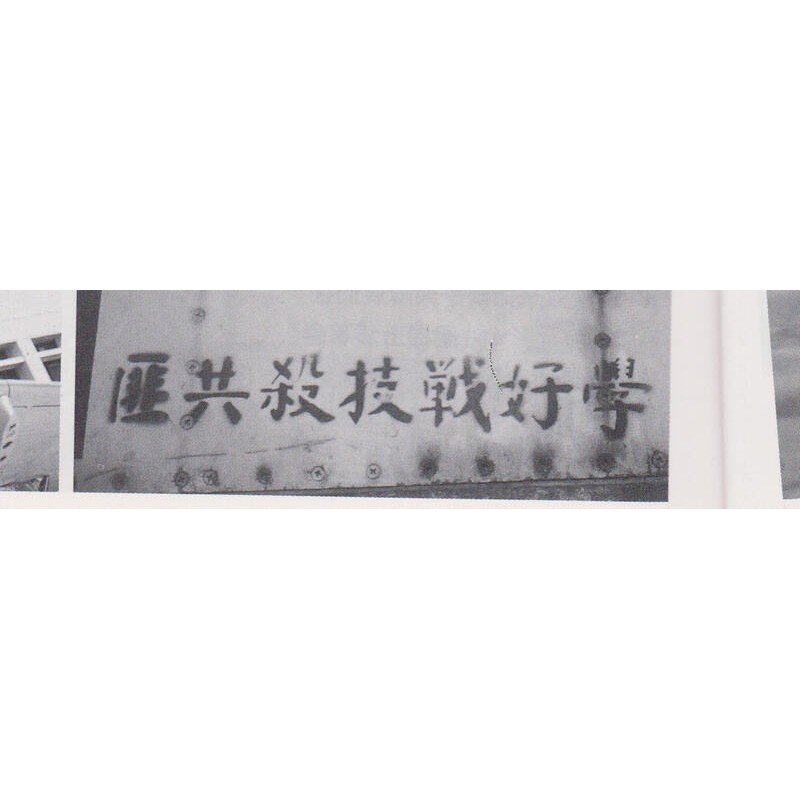 學好戰技殺共匪